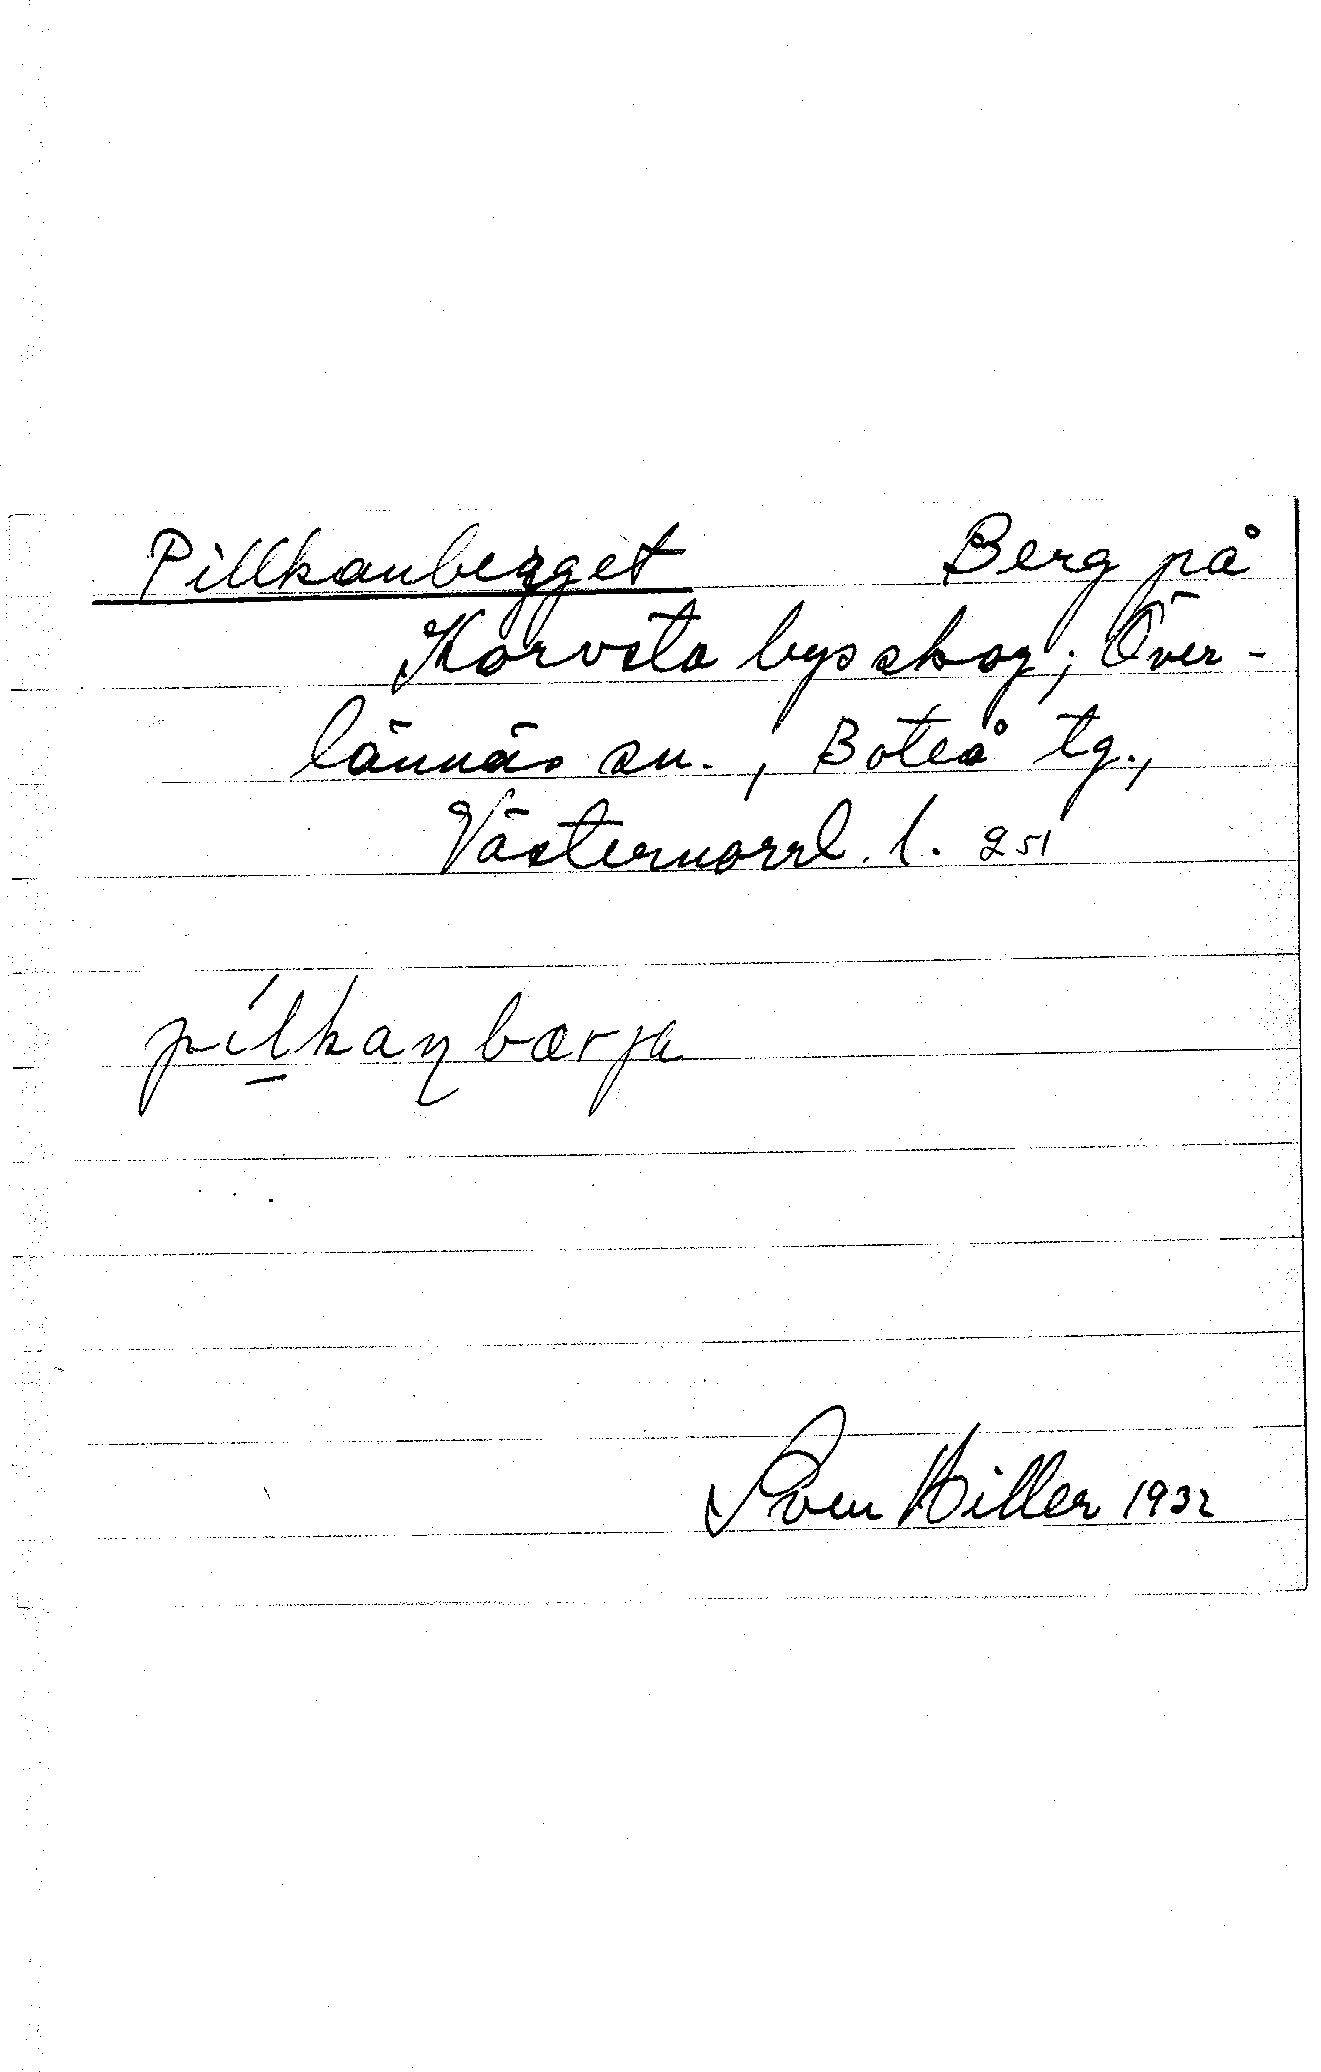 Pillkanbegget Berg på
Korvsta bys skog; Över-
lännäs sn., Boteå tg.,
Västernorrl. l. 251
pilkaŋbærja
Sven Hiller 1932